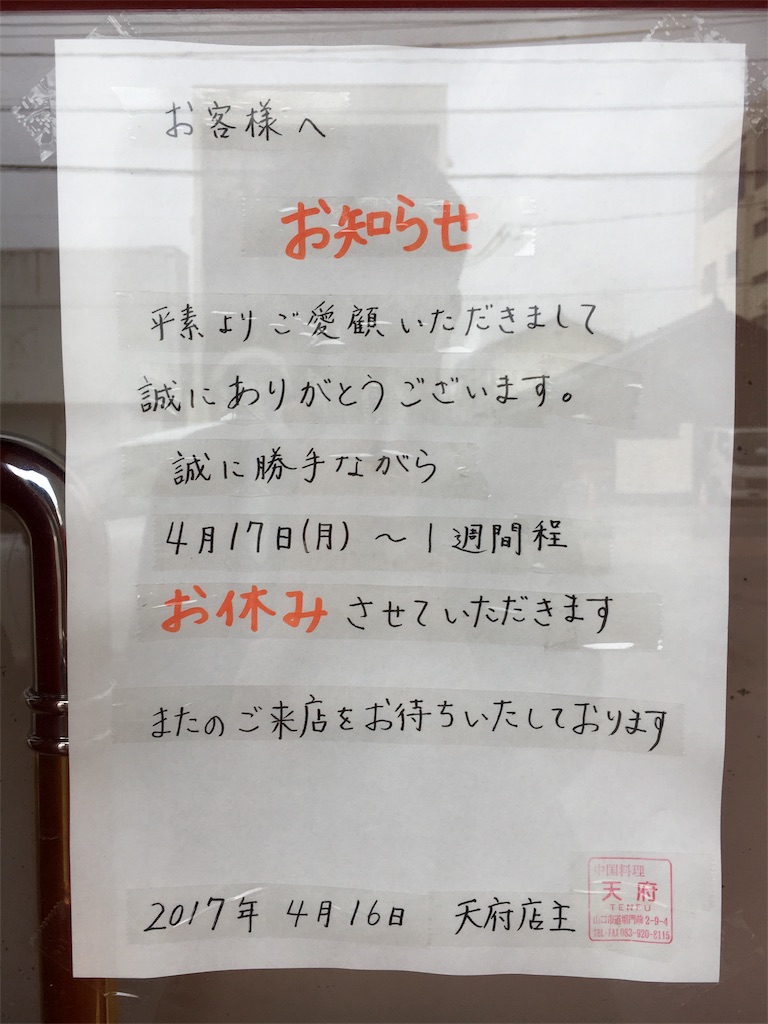 お客様へ
お知らせ
平素よりご愛顧いただきまして
誠にありがとうございます。
誠に勝手ながら
4月17日(月) ～1週間程
お休みさせていただきます
またのご来店をお待ちいたしております
2017年 4月16日 天府店主
中国料理
天府
TENFU
山口市道場門前2-9-4
TEL・FAX 083-920-8115